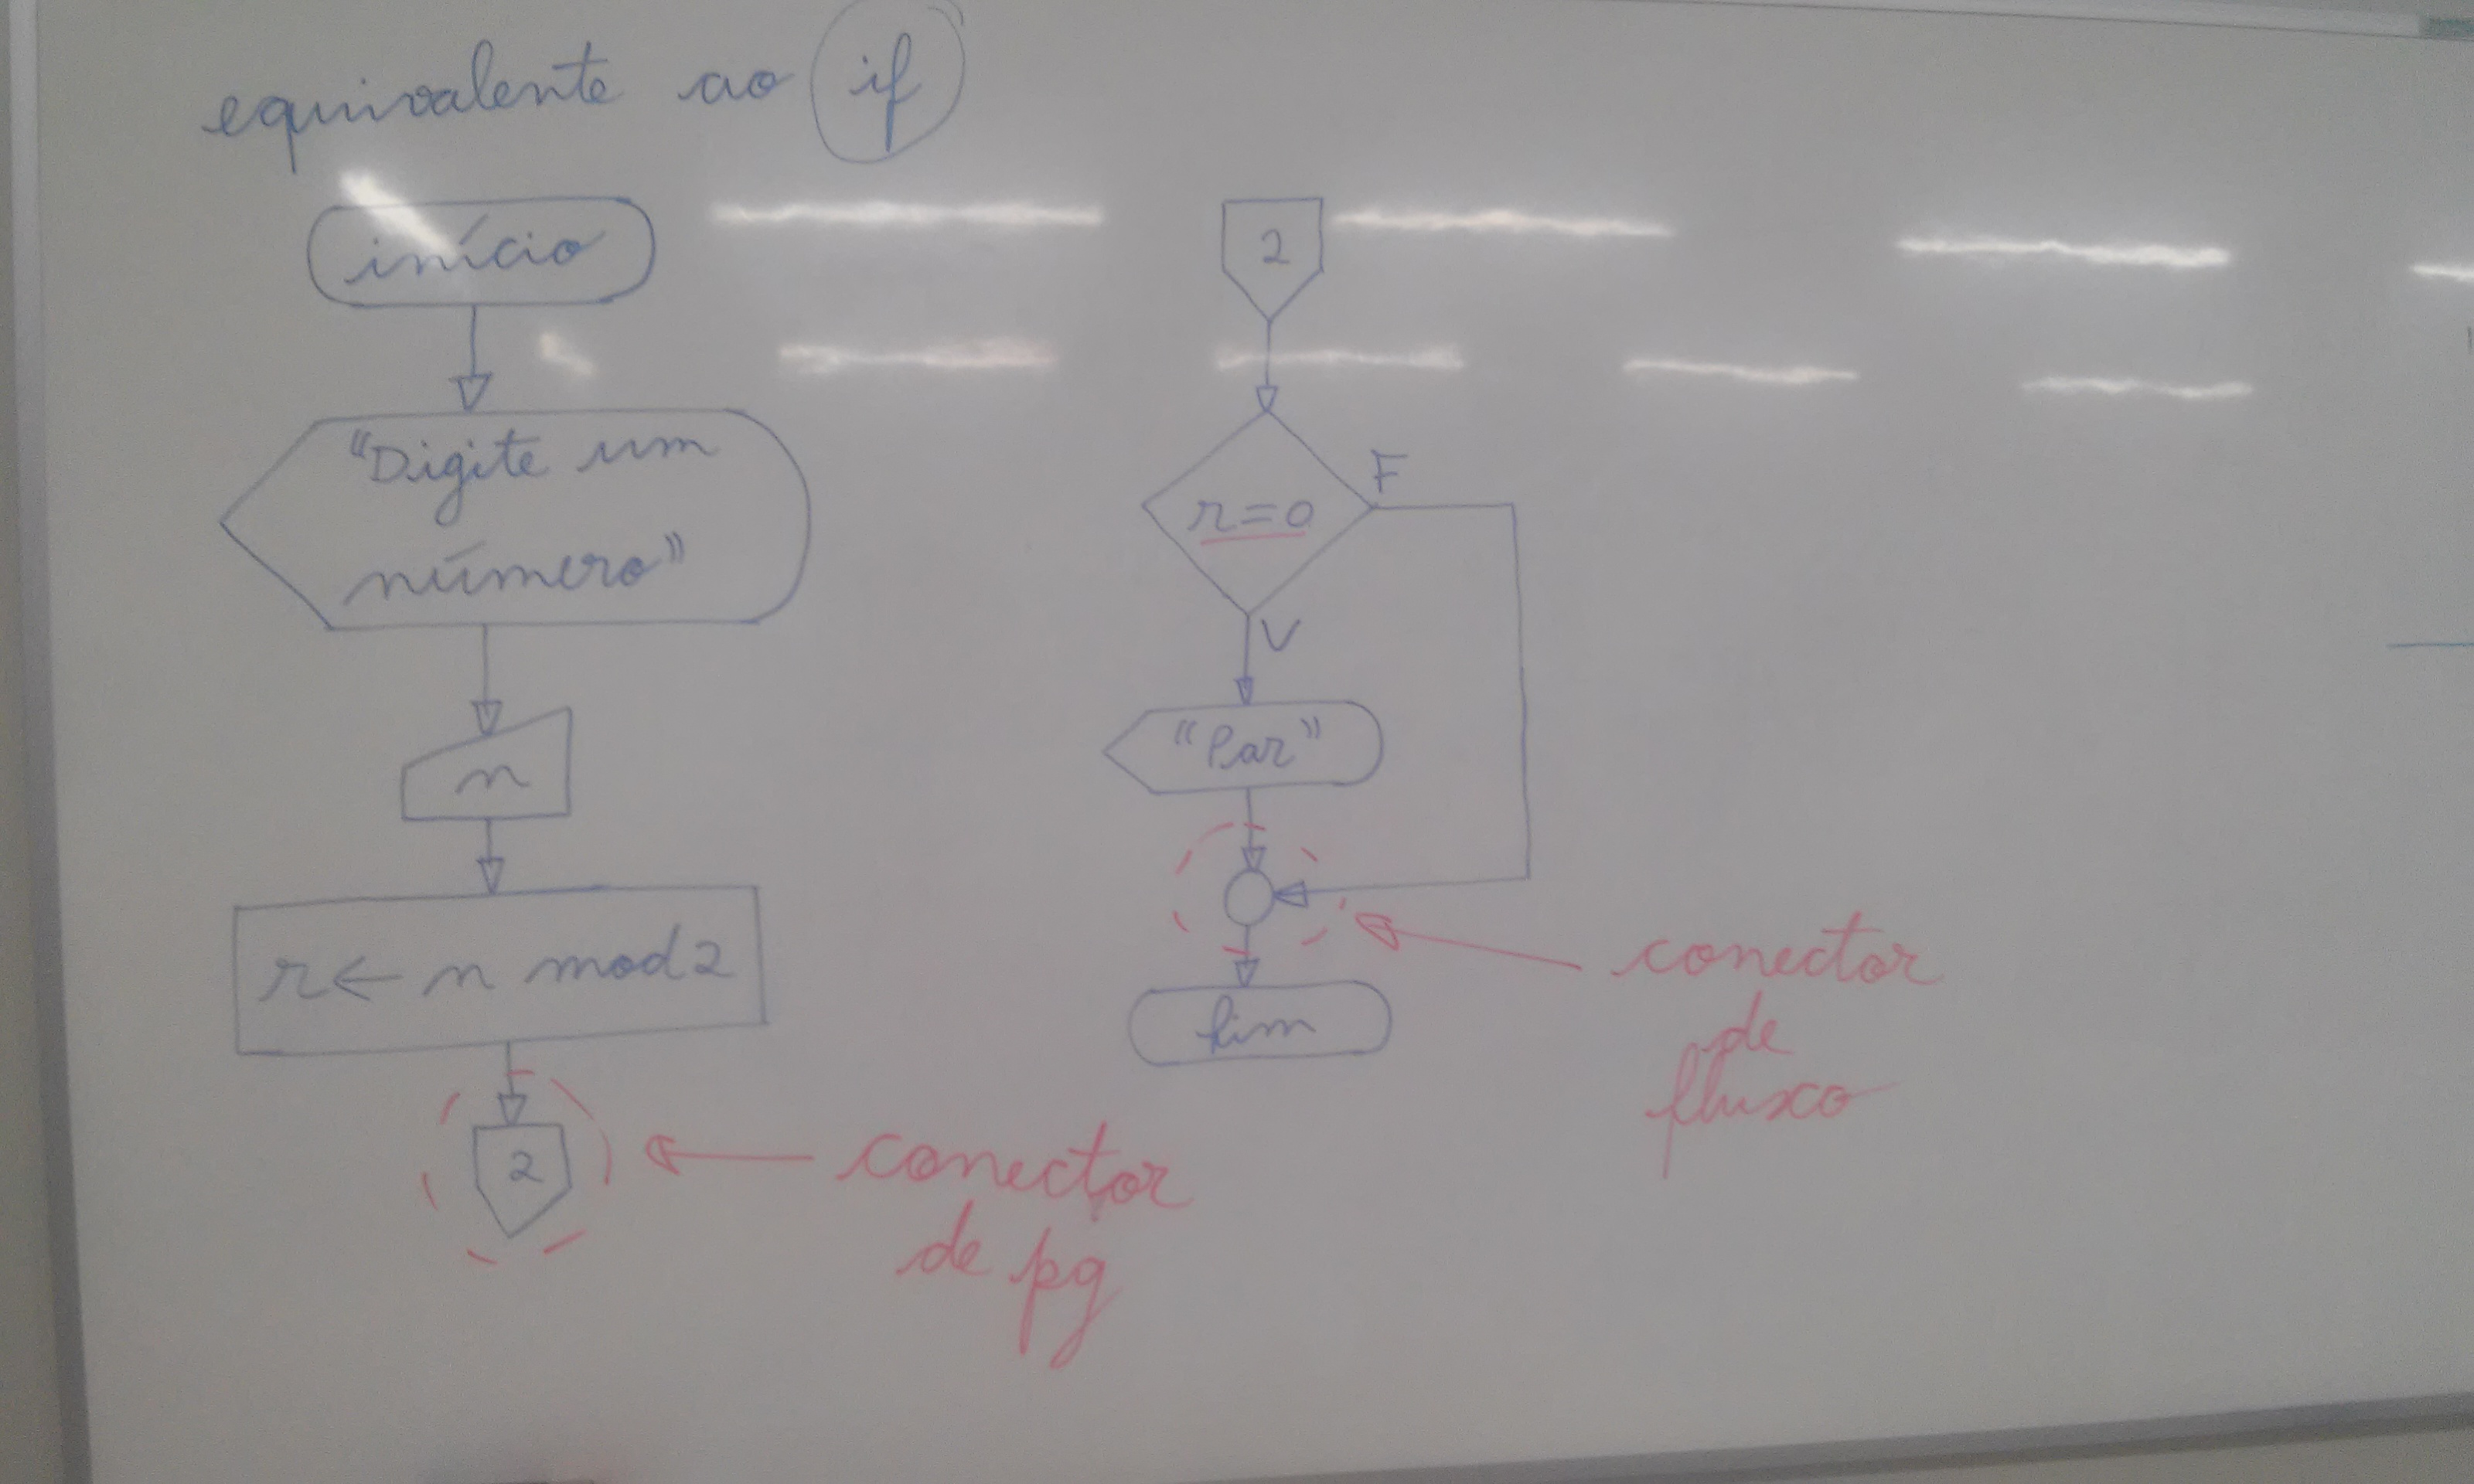 equivalente ao if
início
"Digite um
número"
n
r ← n mod 2
2
conector
de pg
2
r=0
F
V
"Par"
fim
conector
de
fluxo